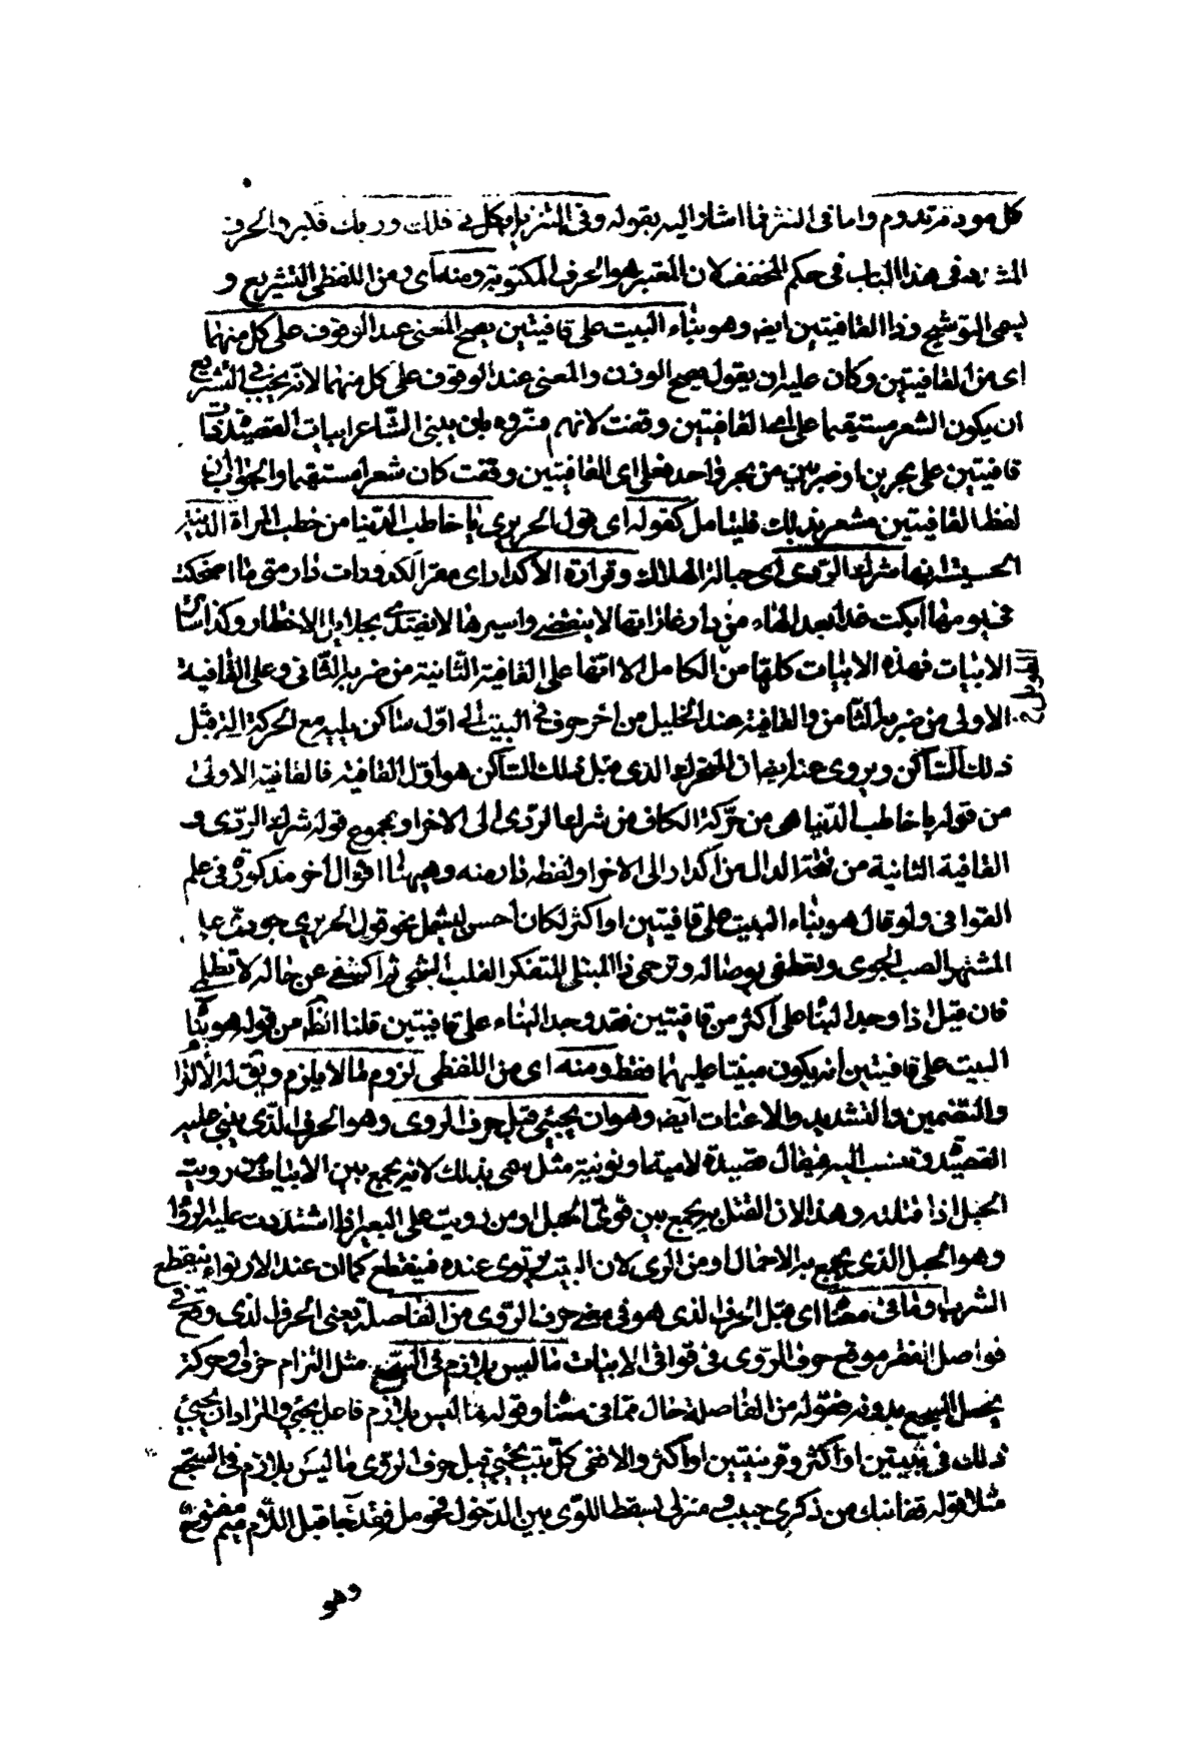 كل مودته تدوم واما فى النثر فما اشار اليه بقوله وفى التنزيل كل فى فلك وربك فكبر والحرف
المشدد فى هذا الباب فى حكم المخفف لان المعتبر هو الحرف المكتوبة ومنه اى ومن اللفظى التشريع و
يسمى التوشيح وذا القافيتين ايضا وهو بناء البيت على قافيتين يصح المعنى عند الوقوف على كل منهما
اى من القافيتين وكان عليه ان يقول يصح الوزن والمعنى عند الوقوف على كل منهما لانه يجب فى التشريع
ان يكون الشعر مستقيما على اى القافيتين وقفت لانهم فسروه بان يبنى الشاعر ابيات القصيدة ذات
قافيتين على بحرين او ضربين من بحر واحد فعلى اى القافيتين وقفت كان شعرا مستقيما والجواب ان
لفظ القافيتين مشعر بذلك فليتامل كقوله اى قول الحريرى يا خاطب الدنيا من خطب المراة الدنية
الخسيسة انها شرك الردى اى حبالة الهلاك وقرارة الاكدار اى مقر الكدورات دار متى ما اضحكت
فى يومها ابكت غدا بعدا لها من دار غاراتها لا تنقضى واسيرها لا يفتدى بجلايل الاخطار وكذا سائر
الابيات فهذه الابيات كلها من الكامل الا انها على القافية الثانية من ضربه الثانى وعلى القافية
الاولى من ضربه الثامن والقافية عند الخليل من اخر حرف فى البيت الى اول ساكن يليه مع الحركة التى قبل
ذلك الساكن ويروى عنه ايضا ان المتحرك الذى قبل ذلك الساكن هو اول القافية فالقافية الاولى
من قوله يا خاطب الدنيا هى من حركة الكاف من شرك الردى الى الاخر او مجموع قوله شرك الردى و
القافية الثانية من فتحة الدال من اكدار الى الاخر او لفظه دار منه وههنا اقوال اخر مذكورة فى علم
القوافى ولو قال هو بناء البيت على قافيتين او اكثر لكان احسن ليشمل نحو قول الحريرى جودى على
المستهتر الصب الجوى وتعطفى بوصاله وترحمى ذا المبتلى المتفكر القلب الشجى ثم اكشفى عن حاله لا تظلمى
فان قيل اذا وجد البناء على اكثر من قافيتين فقد وجد البناء على قافيتين قلنا الظاهر من قوله هو بناء
البيت على قافيتين انه يكون مبنيا عليهما فقط ومنه اى من اللفظى لزوم ما لا يلزم ويق له الالتزام
والتضمين والتشديد والاعنات ايضا وهو ان يجيئ قبل حرف الروى وهو الحرف الذى يبنى عليه
القصيدة وتنسب اليه فيقال قصيدة لامية او نونية مثلا سمى بذلك لانه يجمع بين الابيات من رويت
الحبل اذا فتلته وهذا لان الفتل يجمع بين قوى الحبل او من رويت على البعير اذا شددت عليه الرواء
وهو الحبل الذى يجمع به الاحمال او من الرى لان البيت يرتوى عنده فينقطع كما ان عند الارتواء ينقطع
الشرب او ما فى معناه اى قبل الحرف الذى هو فى معنى حرف الروى من الفاصلة يعنى الحرف الذى وقع فى
فواصل الفقر موقع حرف الروى فى قوافى الابيات ما ليس بلازم فى السجع مثل التزام حرف او حركة
يحصل السجع بدونه فقوله من الفاصلة حال مما فى معناه وقوله ما ليس بلازم فاعل يجيئ والمراد ان يجيئ
ذلك فى بيتين او اكثر وقرينتين او اكثر والا ففى كل بيت يجيئ قبل حرف الروى ما ليس بلازم فى السجع
مثلا قوله قفا نبك من ذكرى حبيب ومنزل بسقط اللوى بين الدخول فحومل فقد جا قبل اللام ميم مفتوحة
وهو